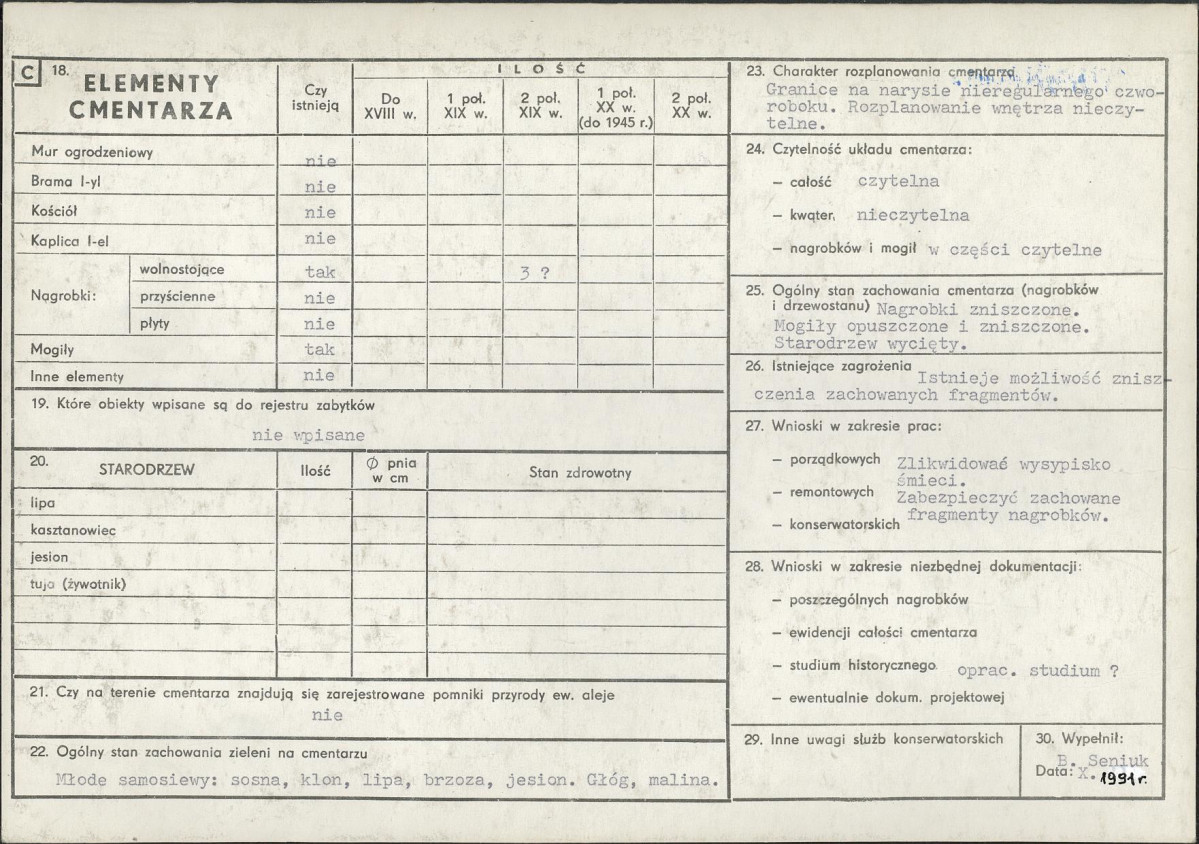 C 18. ELEMENTY CMENTARZA
Czy istnieją
ILOŚĆ
Do XVIII w.
1 poł. XIX w.
2 poł. XIX w.
1 poł. XX w. (do 1945 r.)
2 poł. XX w.
Mur ogrodzeniowy nie
Brama I-yl nie
Kościół nie
Kaplica I-el nie
Nagrobki:
wolnostojące tak 3 ?
przyścienne nie
płyty nie
Mogiły tak
Inne elementy nie
19. Które obiekty wpisane są do rejestru zabytków
nie wpisane
20. STARODRZEW Ilość Ø pnia w cm Stan zdrowotny
lipa
kasztanowiec
jesion
tuja (żywotnik)
21. Czy na terenie cmentarza znajdują się zarejestrowane pomniki przyrody ew. aleje
nie
22. Ogólny stan zachowania zieleni na cmentarzu
Młode samosiewy: sosna, klon, lipa, brzoza, jesion. Głóg, malina.
23. Charakter rozplanowania cmentarza
Granice na narysie nieregularnego czwo-
roboku. Rozplanowanie wnętrza nieczy-
telne.
24. Czytelność układu cmentarza:
— całość czytelna
— kwater, nieczytelna
— nagrobków i mogił w części czytelne
25. Ogólny stan zachowania cmentarza (nagrobków
i drzewostanu) Nagrobki zniszczone.
Mogiły opuszczone i zniszczone.
Starodrzew wycięty.
26. Istniejące zagrożenia Istnieje możliwość znisz-
czenia zachowanych fragmentów.
27. Wnioski w zakresie prac:
— porządkowych Zlikwidować wysypisko
śmieci.
— remontowych Zabezpieczyć zachowane
— konserwatorskich fragmenty nagrobków.
28. Wnioski w zakresie niezbędnej dokumentacji:
— poszczególnych nagrobków
— ewidencji całości cmentarza
— studium historycznego oprac. studium ?
— ewentualnie dokum. projektowej
29. Inne uwagi służb konserwatorskich
30. Wypełnił:
B. Seniuk
Data: X. 1991 r.